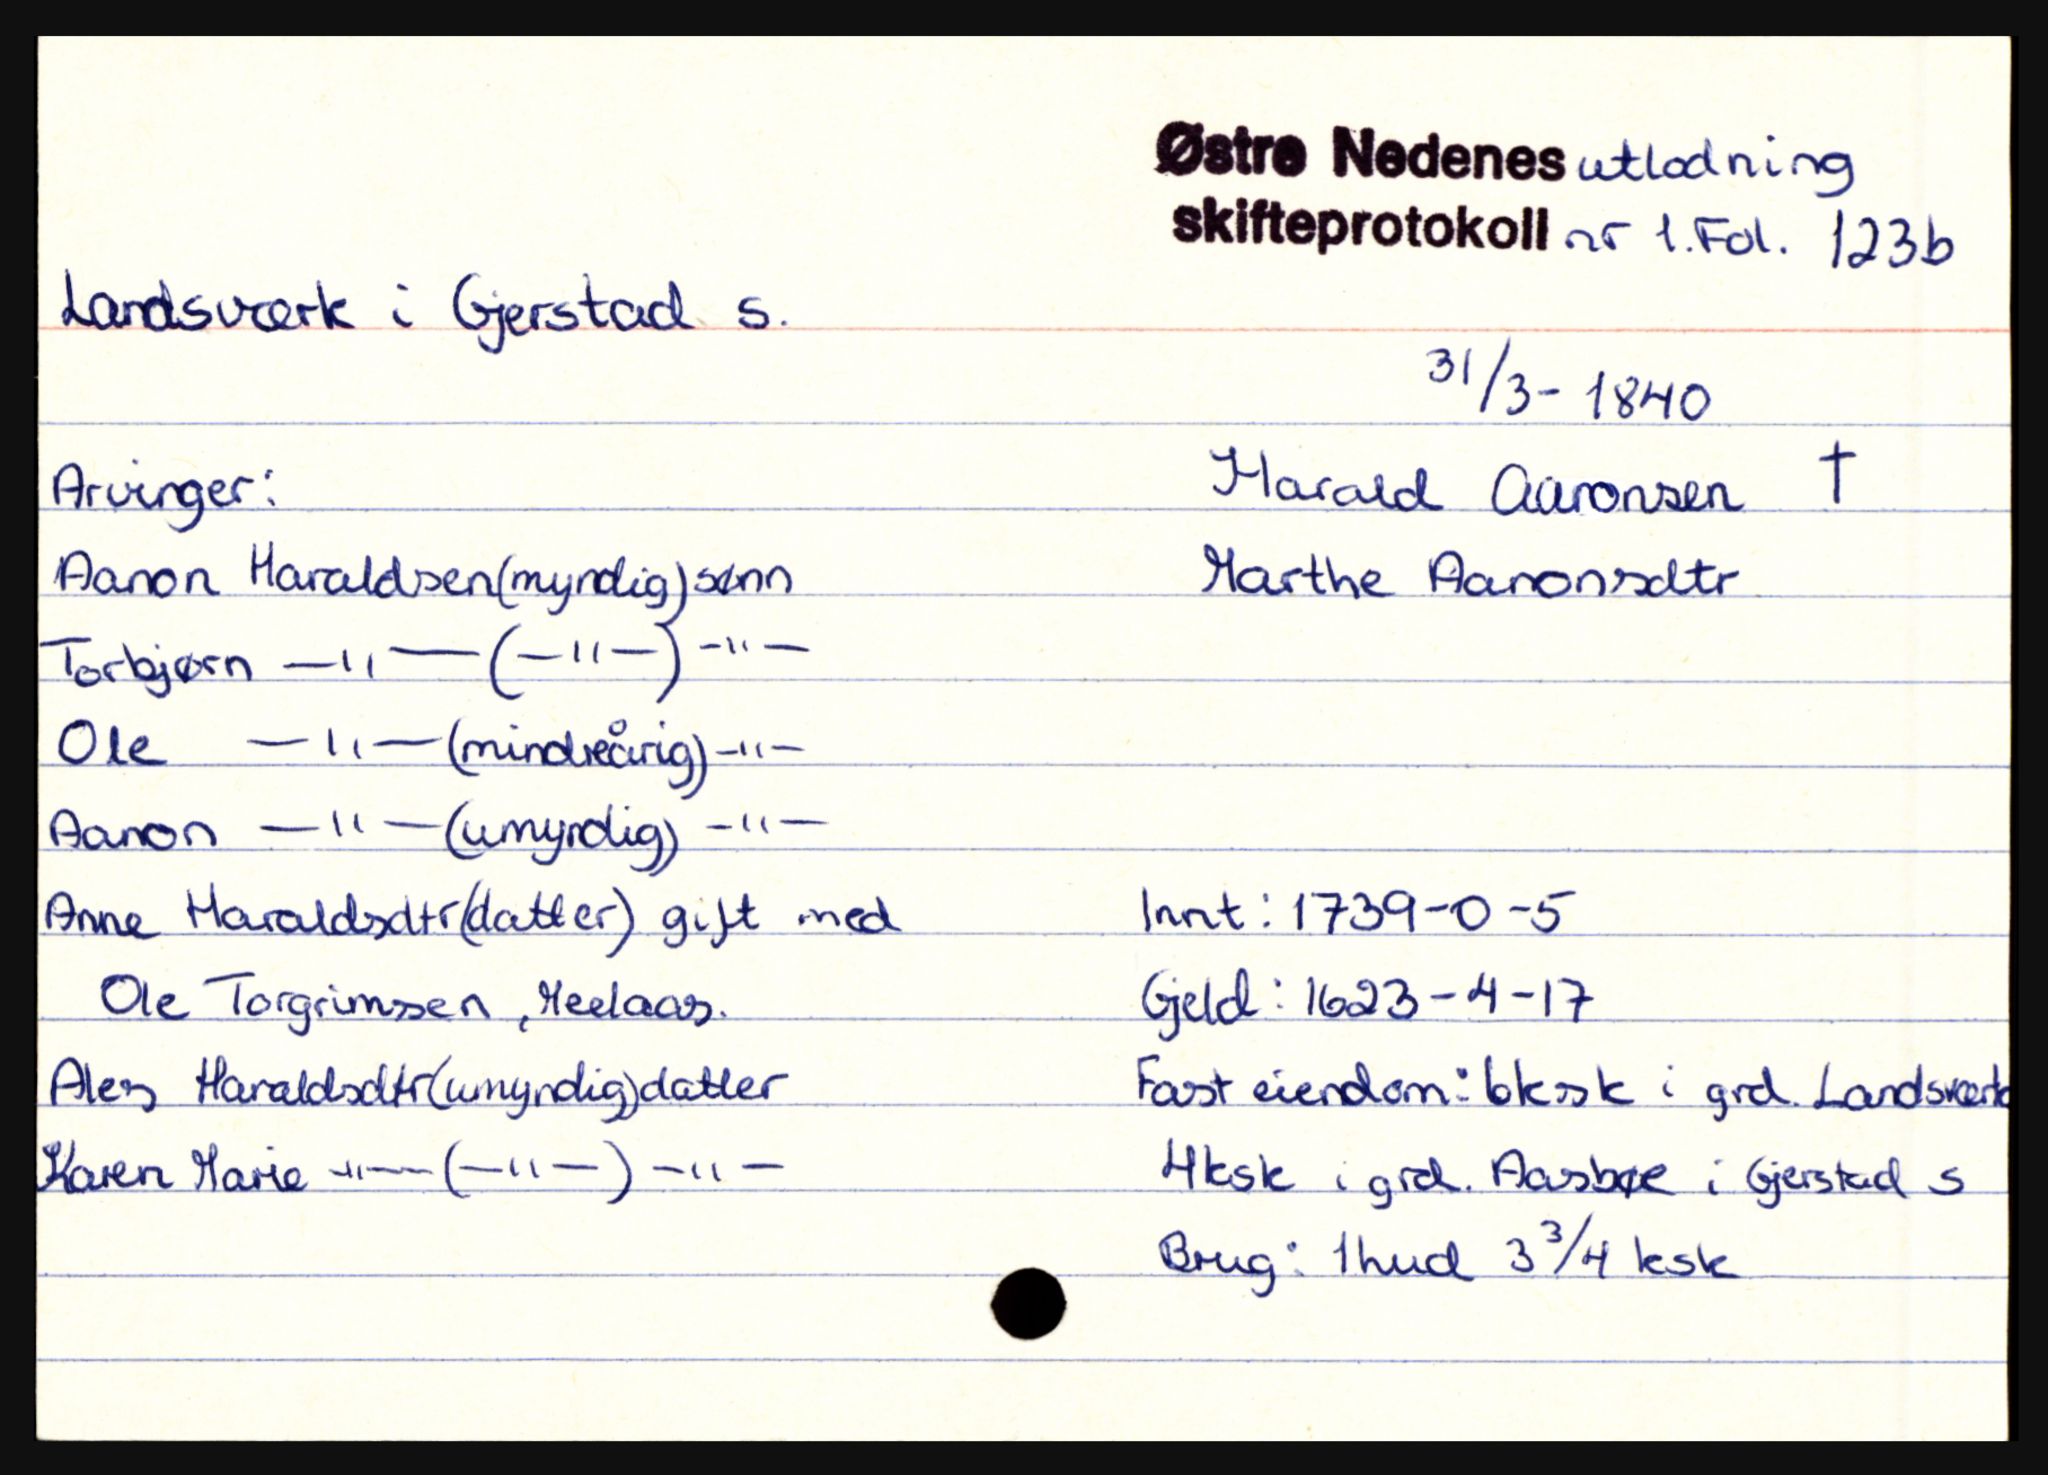 Østre Nedenes utlodning
skifteprotokoll nr 1. Fol. 123b
Landsværk i Gjerstad s.
31/3 - 1840
Arvinger:
Harald Aaronsen †
Aanon Haraldsen (myndig) sønn
Marthe Aanonsdtr
Torbjørn —"— (—"—) —"—
Ole —"— (mindreårig) —"—
Aanon —"— (umyndig) —"—
Anne Haraldsdtr (datter) gift med
Innt: 1739-0-5
Ole Torgrimssen, Meelaas.
Gjeld: 1623-4-17
Ales Haraldsdtr (umyndig) datter
Fast eiendom: 6kssk i grd. Landsværk
Karen Marie —"— (—"—) —"—
4ksk i grd. Aasbøe i Gjerstad s
Brug: 1hud 3 3/4 ksk